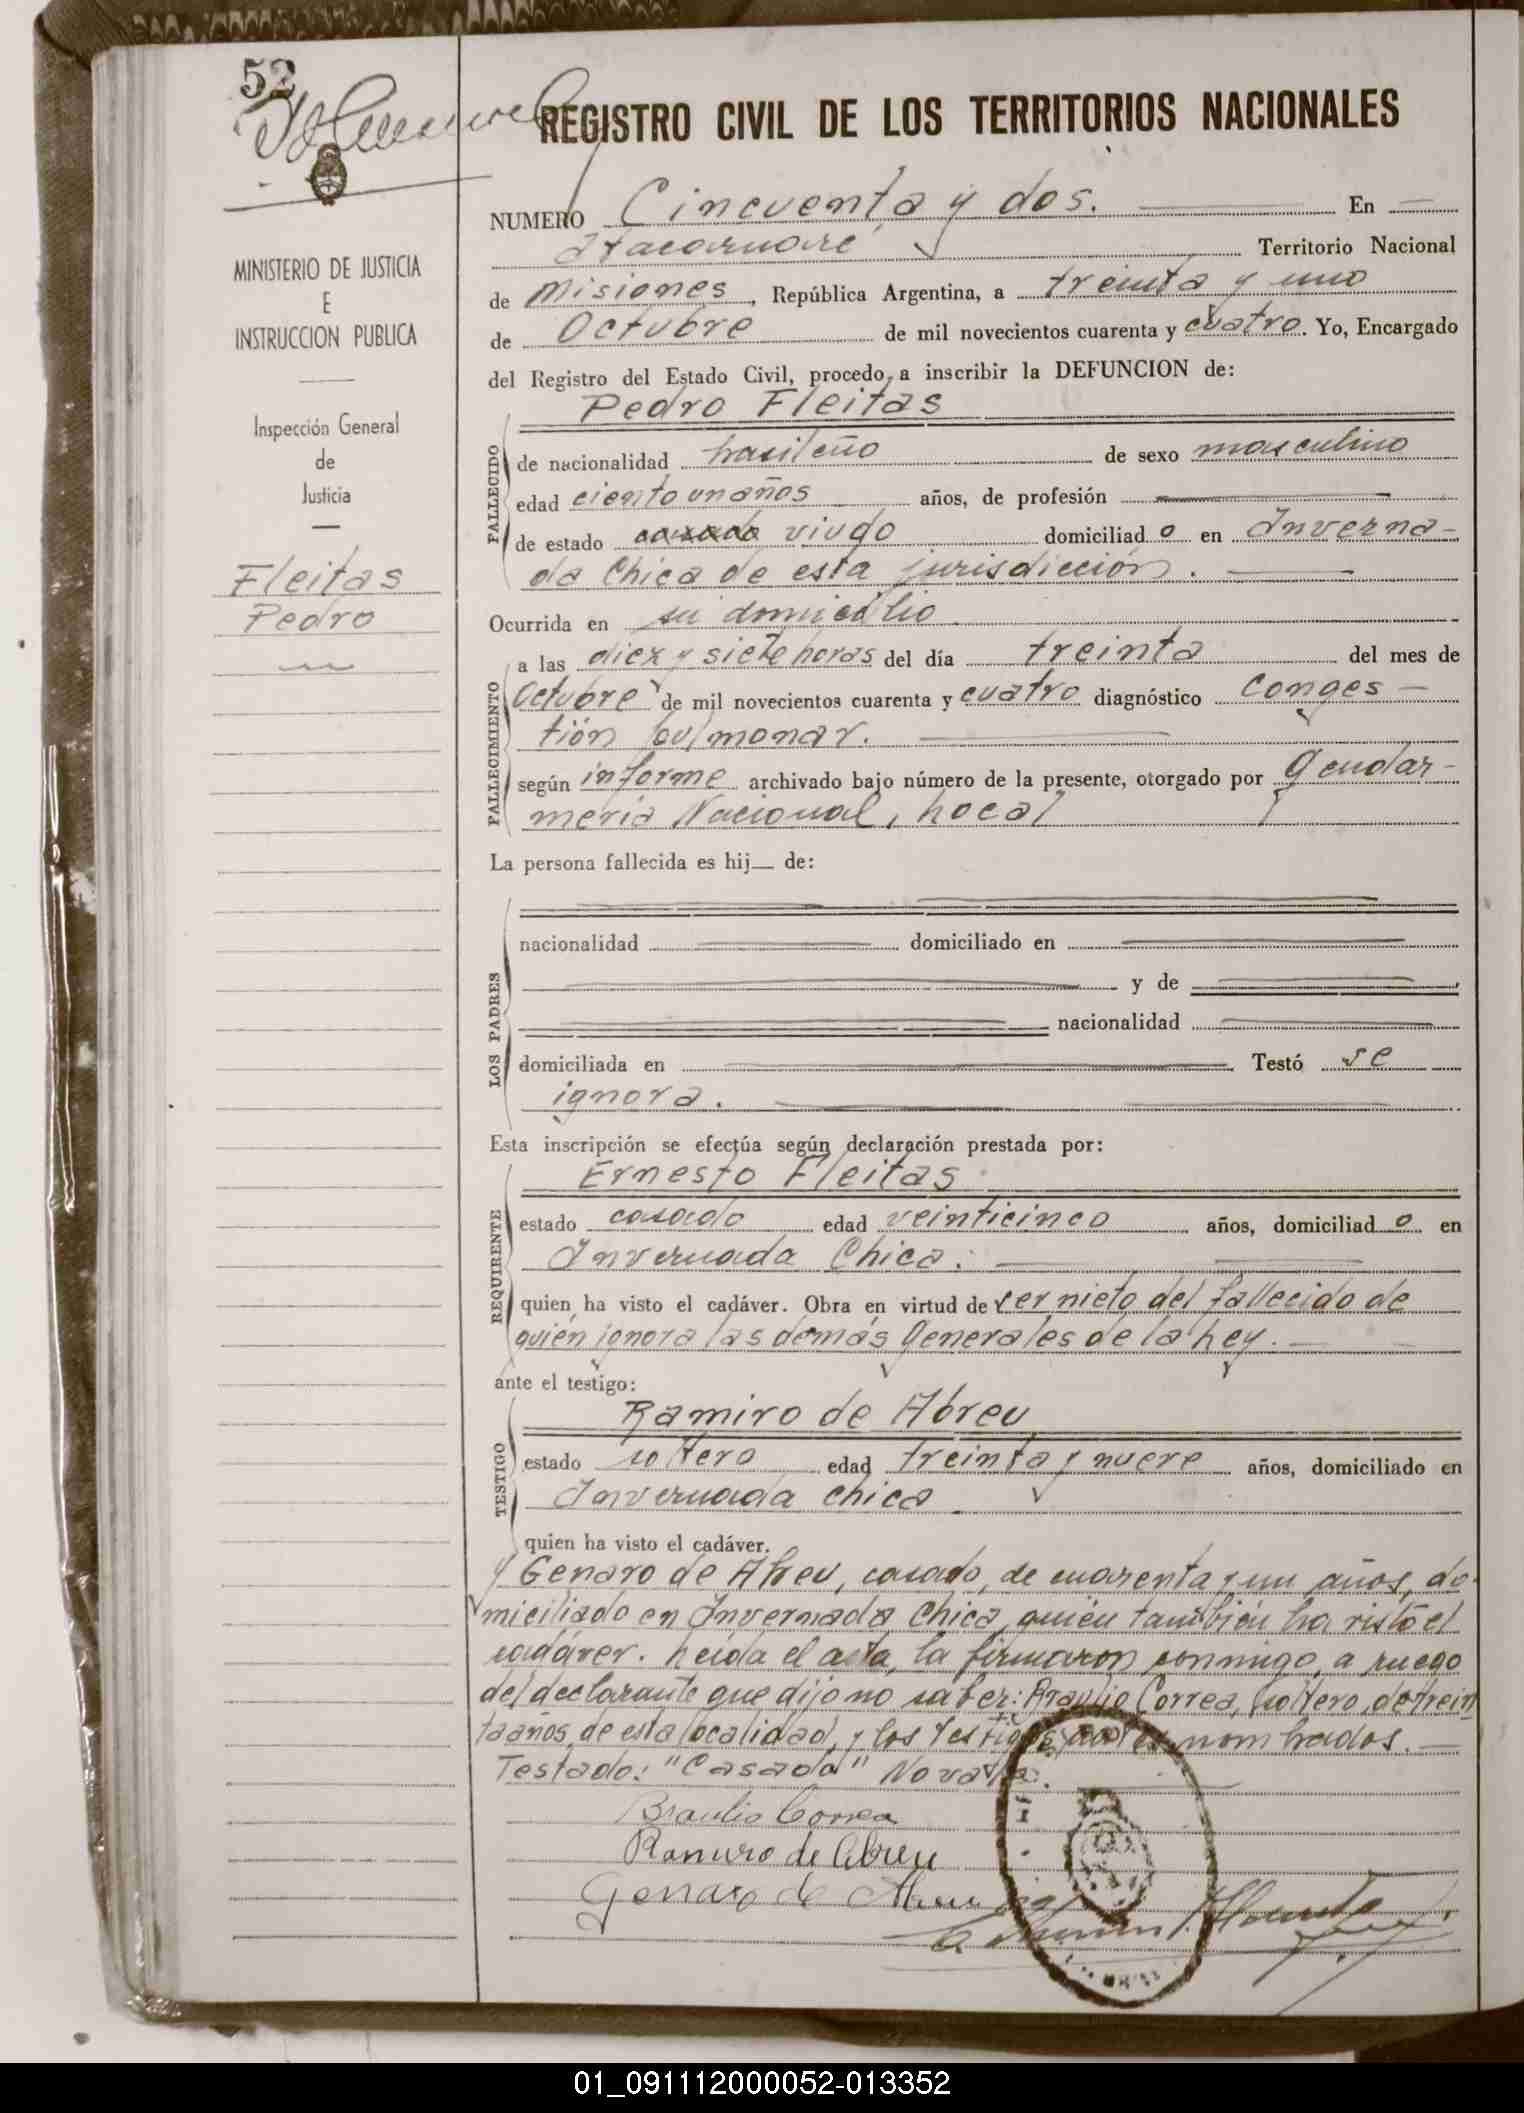 52
REGISTRO CIVIL DE LOS TERRITORIOS NACIONALES
NUMERO Cincuenta y dos. En
Itacaruaré Territorio Nacional
de Misiones, República Argentina, a treinta y uno
de Octubre de mil novecientos cuarenta y cuatro. Yo, Encargado
del Registro del Estado Civil, procedo a inscribir la DEFUNCION de:
Pedro Fleitas
de nacionalidad brasileño de sexo masculino
edad ciento un años años, de profesión
de estado casado viudo domiciliad o en Inverna-
da Chica de esta jurisdicción.
Ocurrida en su domicilio
a las diez y siete horas del día treinta del mes de
Octubre de mil novecientos cuarenta y cuatro diagnóstico conges-
tión pulmonar.
según informe archivado bajo número de la presente, otorgado por Gendar-
mería Nacional, Local
La persona fallecida es hij de:
nacionalidad domiciliado en
y de
nacionalidad
domiciliada en Testó se
ignora.
Esta inscripción se efectúa según declaración prestada por:
Ernesto Fleitas
estado casado edad veinticinco años, domiciliad o en
Invernada Chica.
quien ha visto el cadáver. Obra en virtud de ser nieto del fallecido de
quién ignora las demás Generales de la Ley.
ante el testigo:
Ramiro de Abreu
estado soltero edad treinta y nueve años, domiciliado en
Invernada Chica
quien ha visto el cadáver.
y Genaro de Abreu, casado, de cuarenta y un años, do-
miciliado en Invernada Chica, quién también ha visto el
cadáver. Leída el acta, la firmaron conmigo, a ruego
del declarante que dijo no saber: Braulio Correa, soltero, de trein
ta años, de esta localidad, y los testigos antes nombrados.
Testado: "Casado" No vale.
Braulio Correa
Ramiro de Abreu
Genaro de Abreu
MINISTERIO DE JUSTICIA
E
INSTRUCCION PUBLICA
Inspección General
de
Justicia
Fleitas
Pedro
FALLECIDO
FALLECIMIENTO
LOS PADRES
REQUIRENTE
TESTIGO
01_091112000052-013352